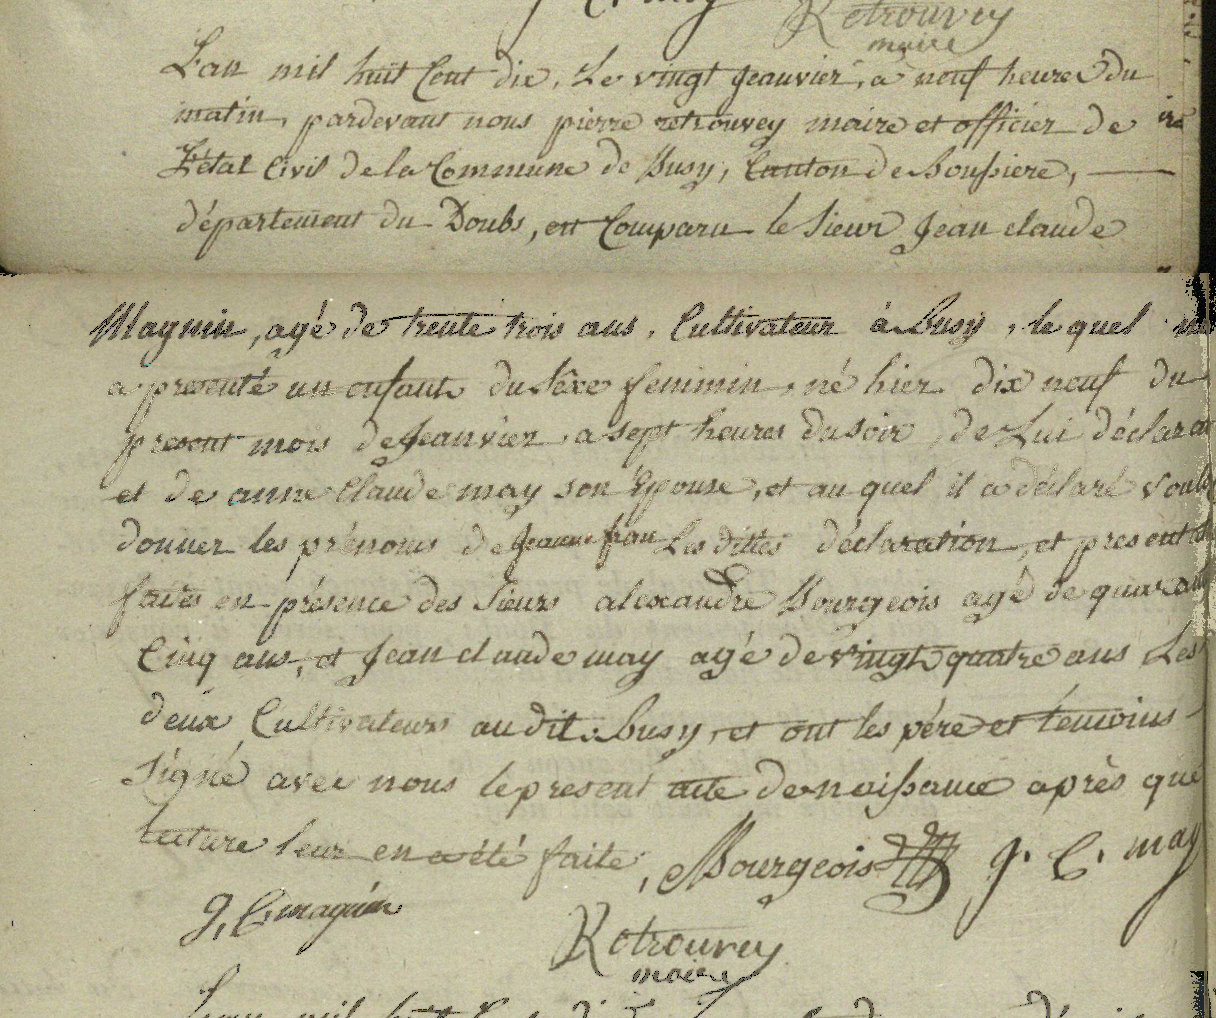 Retrouvey
maire
L'an mil huit Cent dix, Le vingt Jeauvier, a neuf heures du
matin, pardevant nous pierre retrouvey maire et officier de
L'état Civil de la Commune de Busy, Canton de Boussiere,
département du Doubs, est Comparu le Sieur Jean claude
Magnin, agé de trente trois ans, Cultivateur à Busy, le quel
a presenté un enfant du Sêxe feminin, né hier dix neuf du
present mois de Jeanvier, a sept heures du soir, de Lui déclarant
et de anne Claude may son Epouse, et au quel il a déclaré
donner les prénoms de Jeanne fran Les dittes déclaration, et
faites en présence des Sieurs alexandre Bourgeois agé de quarante
Cinq ans, et Jean claude may agé de vingt quatre ans Les
deux Cultivateurs au dit Busy, et ont les père et temoins
Signé avec nous le present acte de naissance après que
lecture leur en a été faite, Bourgeois J. C. may
J, C, magnin
Retrouvey
maire